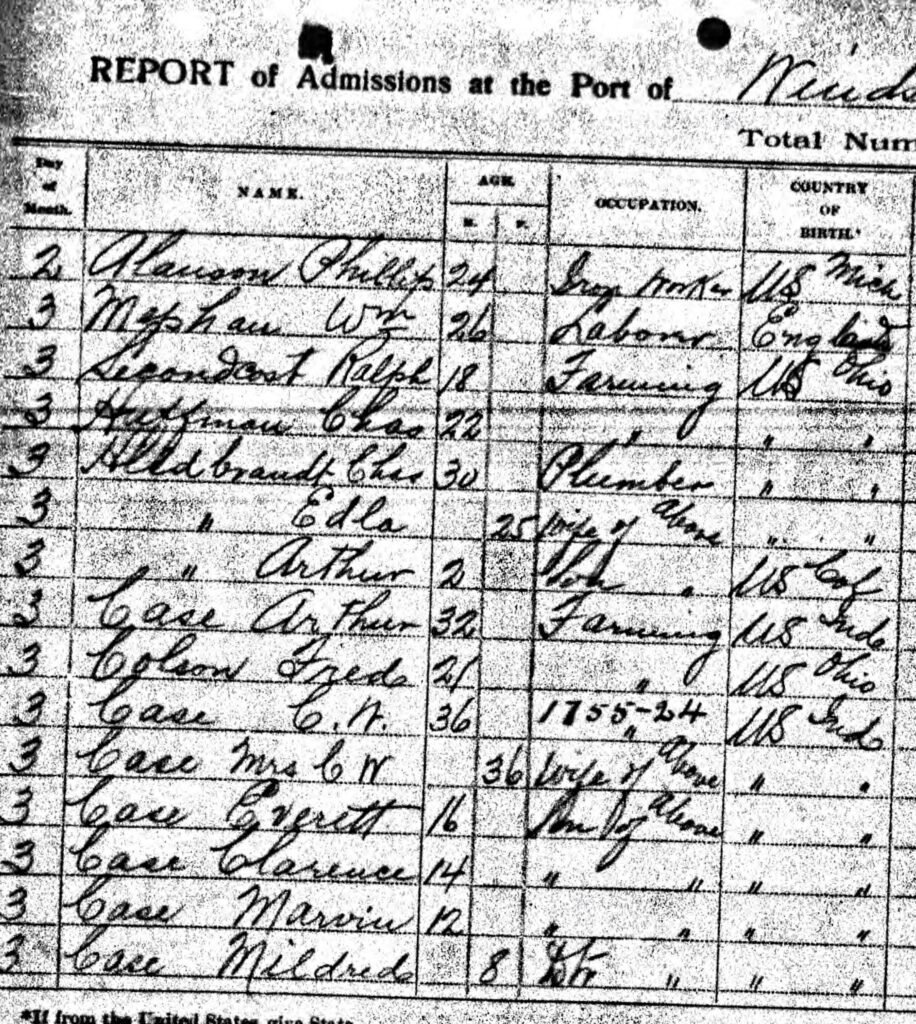 REPORT of Admissions at the Port of Winds
Total Num
Day of Month. NAME. AGE. M. F. OCCUPATION. COUNTRY OF BIRTH.*
2 Alanson Phillip 24 Iron Worker US Mich
3 Mapham Wm 26 Laborer England
3 Secondcost Ralph 18 Farming US Ohio
3 Huffman Chas 22 " " "
3 Hildbrandt Chas 30 Plumber " "
3 " Edla 25 Wife of Above " "
3 " " Arthur 2 Son " US Col
3 Case Arthur 32 Farming US Ind
3 Colson Fred 21 " US Ohio
3 Case C.W. 36 1755-24 " US Ind
3 Case Mrs C W 36 Wife of Above " "
3 Case Everett 16 Son of Above " "
3 Case Clarence 14 " " " "
3 Case Marvin 12 " " " "
3 Case Mildred 8 Dtr " " "
*If from the United States give State